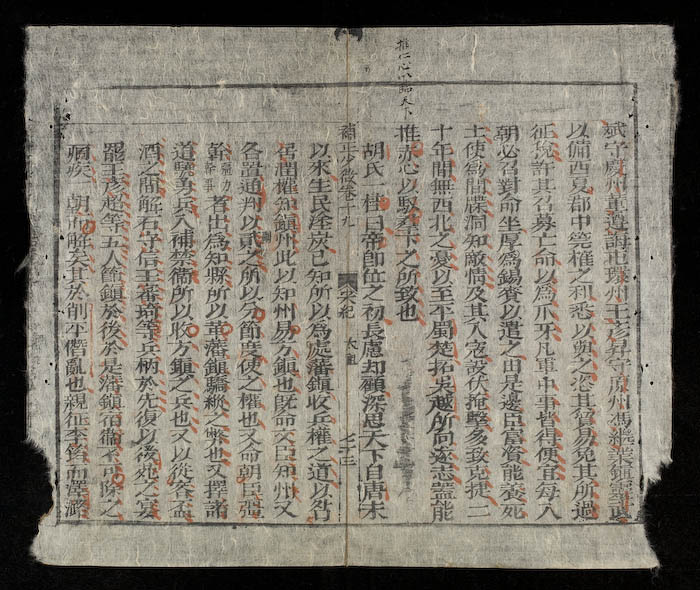 推仁心以臨天下
斌守慶州董遵誨屯環州王彦昇守原州馮繼業鎮靈武
以備西夏郡中筦榷之利悉以與之恣其貿易免其所過
征稅許其召募亡命以爲爪牙凡軍中事皆得便宜每入
朝必召對命坐厚爲錫賚以遣之由是邊臣富貲能養死
士使爲間諜洞知敵情及其入寇設伏掩擊多致克捷二
十年間無西北之憂以至平蜀楚拓吳越所向遂志蓋能
推赤心以馭羣下之所致也
胡氏一桂曰帝卽位之初長慮却顧深思天下自唐末
補正少微卷十九
宋紀
太祖
二十三
以來生民塗炭已知所以爲處藩鎮收兵權之道以翁
呂潤權知鎮州此以知州易方鎮也旣命文臣知州又
各置通判以貳之所以分節度使之權也又命朝臣強
幹
者出爲知縣所以革藩鎮驕縱之弊也又擇諸
道驍勇兵入補禁衞所以收方鎮之兵也又以從容盃
酒之間解石守信王審琦等兵柄於先復以後苑之宴
罷王彥超等五人節鎮於後於是藩鎮宿衞不可除之
痼疾一朝而解矣其於削平僭亂也親征李筠而置潞